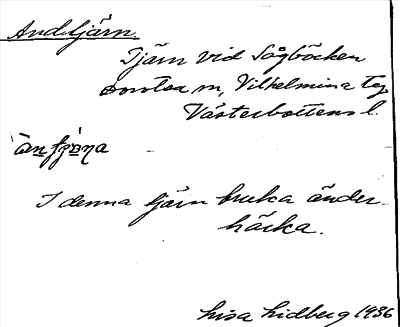 Andtjärn.
Tjärn vid Sågbäcken
m, Vilhelmina
Västerbottens l.
I denna tjärn bruka änder
häcka.
Lisa Lidberg 1936